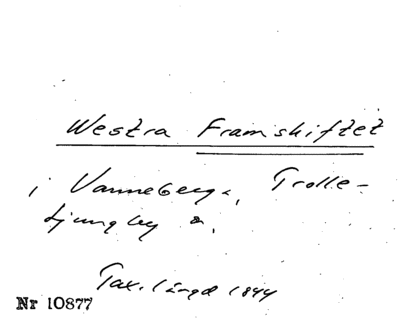 Westra Framskiftet
i Vanneberga, Trolle-
Ljungby s.
Tax. längd 1844
Nr 10877